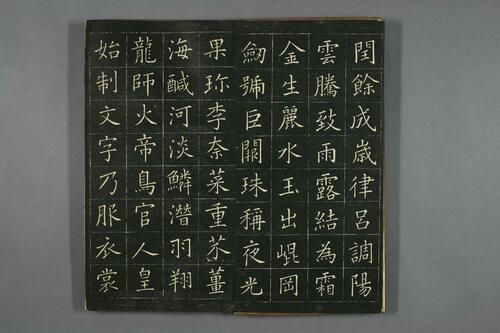 閏餘成歲律呂調陽
雲騰致雨露結為霜
金生麗水玉出崐岡
劒號巨闕珠稱夜光
果珎李柰菜重芥薑
海醎河淡鱗潛羽翔
龍師火帝鳥官人皇
始制文字乃服衣裳